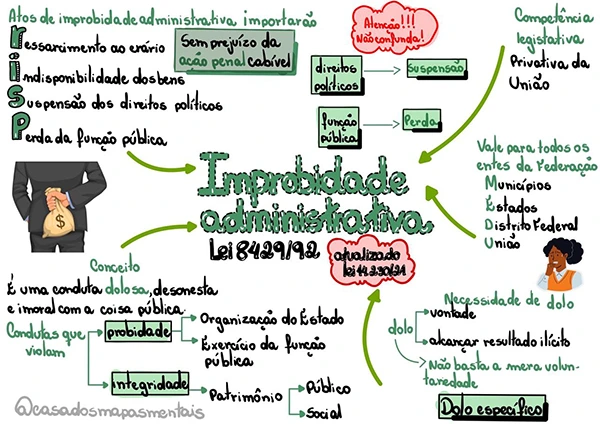 Atos de improbidade administrativa importarão
ressarcimento ao erário
indisponibilidade dos bens
suspensão dos direitos políticos
Perda da função pública
Sem prejuízo da
ação penal cabível
Atenção!!!
Não confunda!
direitos
políticos
Suspensão
função
pública
Perda
Competência
legislativa
Privativa da
União
Vale para todos os
entes da Federação
Municípios
Estados
Distrito Federal
União
Improbidade
administrativa
Lei 8429/92
atualizado
lei 14.230/21
$
Conceito
É uma conduta dolosa, desonesta
e imoral com a coisa pública
Condutas que
violam
probidade
Organização do Estado
Exercício da função
pública
integridade
Patrimônio
Público
Social
Necessidade de dolo
dolo
vontade
alcançar resultado ilícito
Não basta a mera volun-
tariedade
Dolo específico
@casadosmapasmentais